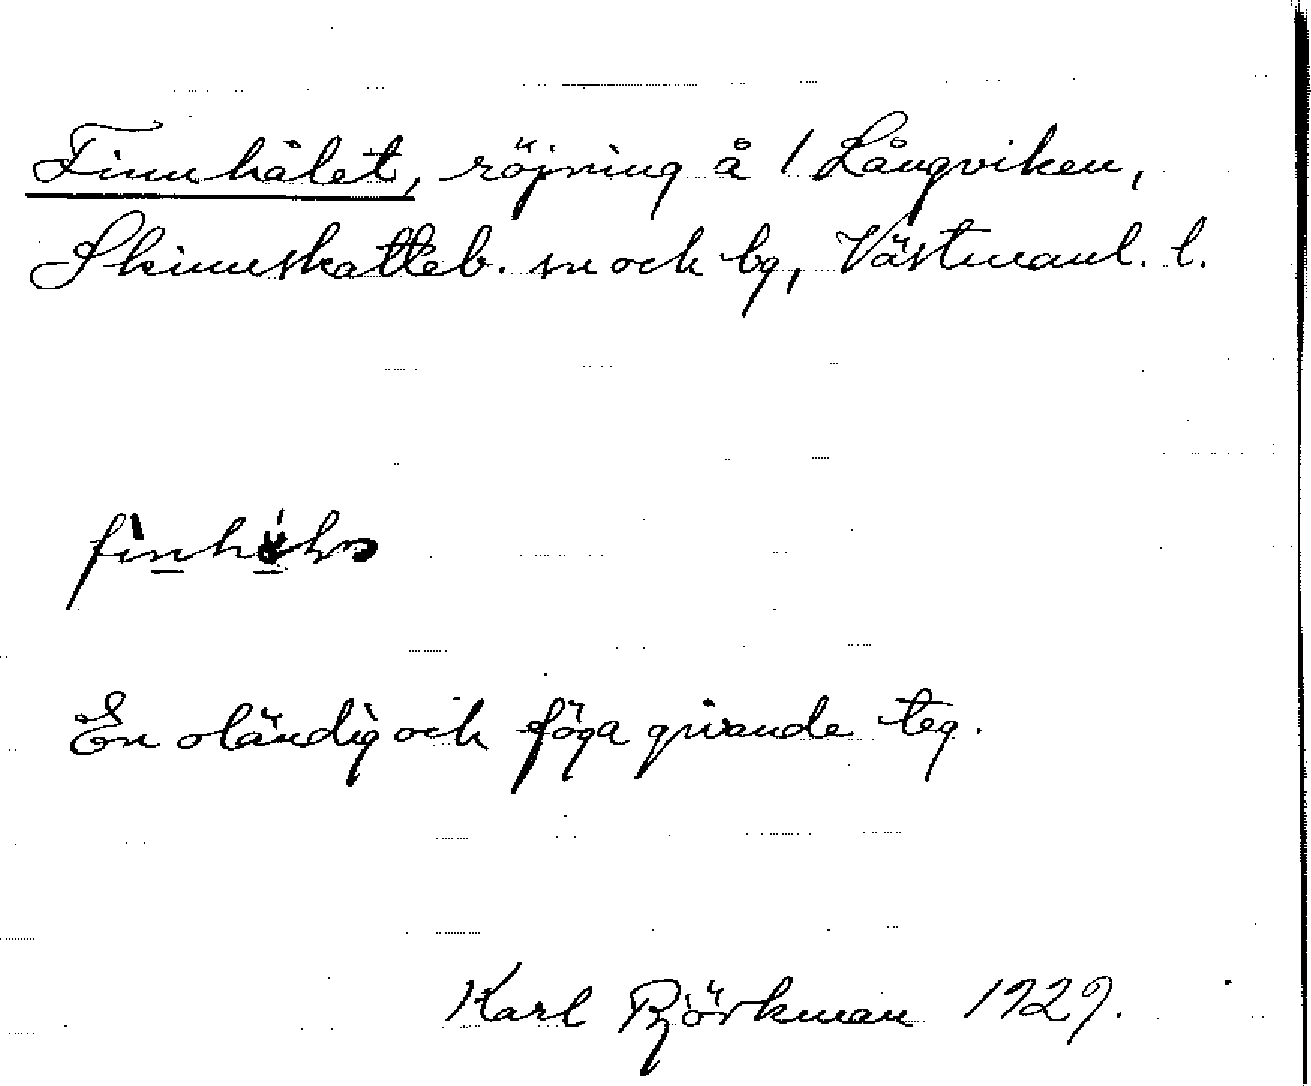 Finnhålet, röjning å 1 Långviken,
Skinnskatteb. sn och bg, Västmanl. l.
En oländig och föga givande teg.
Karl Björkman 1929.